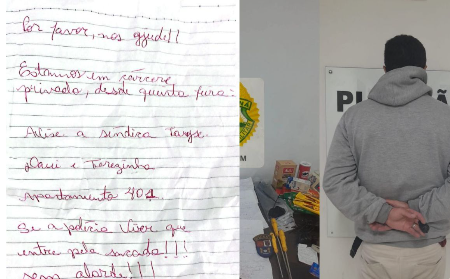 Por favor, nos ajude!!
Estamos em cárcere
privado, desde quinta feira.
Avise a síndica
Davi e Terezinha
apartamento 401
Se a polícia vier que
entre pela sacada!!!
sem alarde!!!
PL ÃO